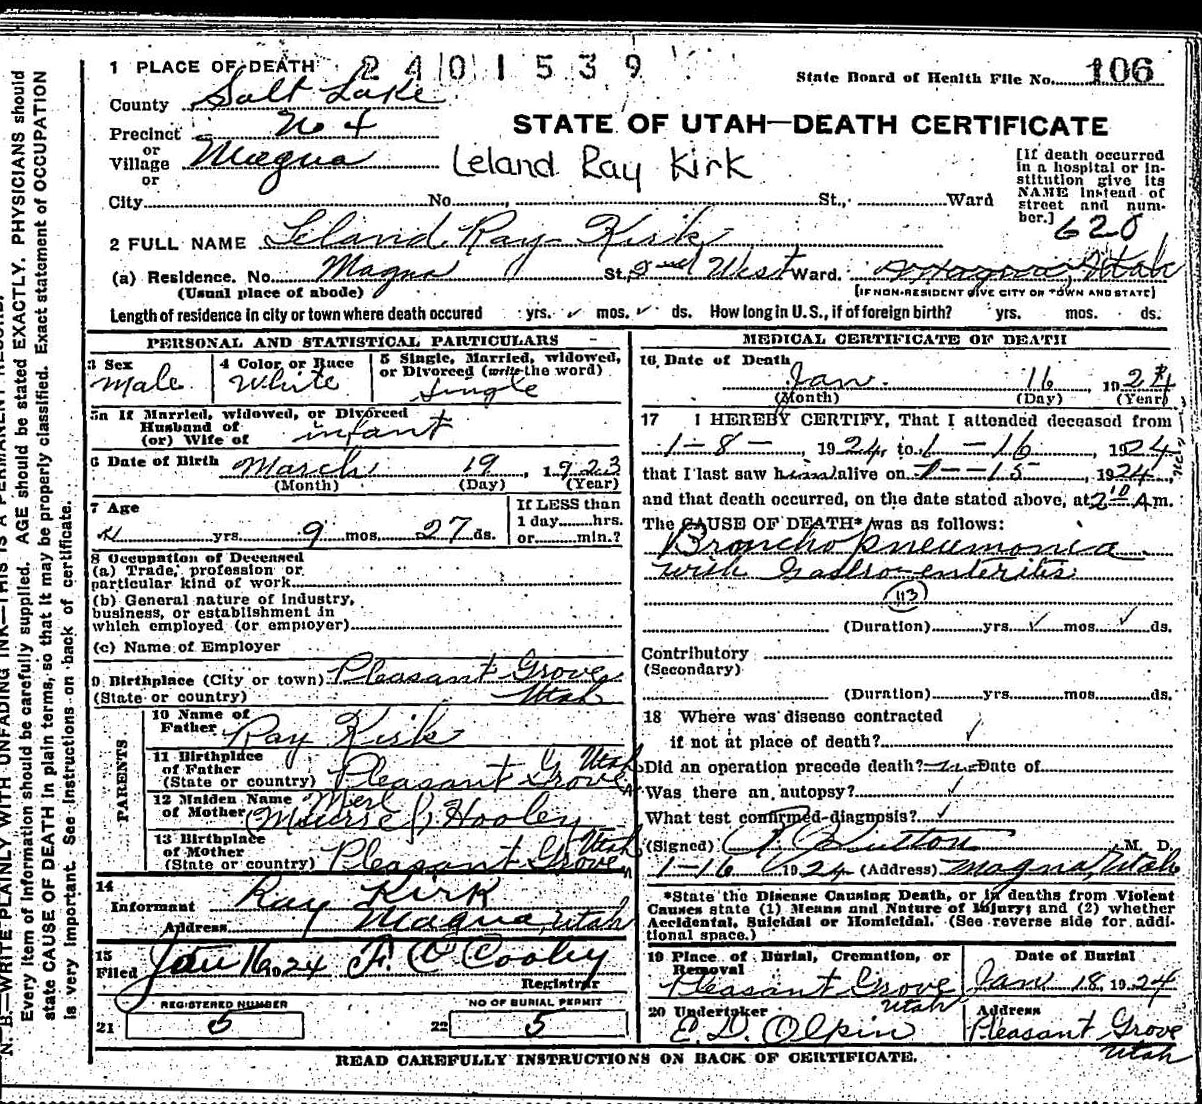 1 PLACE OF DEATH 2401539
State Board of Health File No. 106
County Salt Lake
Precinct No 4
or
Village Magna
or
STATE OF UTAH—DEATH CERTIFICATE
Leland Ray Kirk
[If death occurred in a hospital or institution give its NAME instead of street and number.]
620
City No. St., Ward
2 FULL NAME Leland Ray Kirk
(a) Residence. No. Magna St, 2nd West Ward. Magna, Utah
(Usual place of abode) [IF NON-RESIDENT GIVE CITY OR TOWN AND STATE]
Length of residence in city or town where death occured yrs. ✓ mos. ✓ ds. How long in U.S., if of foreign birth? yrs. mos. ds.
PERSONAL AND STATISTICAL PARTICULARS
3 Sex Male
4 Color or Race White
5 Single, Married, widowed, or Divorced (write the word) Single
5a If Married, widowed, or Divorced
Husband of
(or) Wife of infant
6 Date of Birth March 19, 1923
(Month) (Day) (Year)
7 Age
yrs. 9 mos. 27 ds.
If LESS than
1 day hrs.
or min.?
8 Occupation of Deceased
(a) Trade, profession or
particular kind of work
(b) General nature of industry,
business, or establishment in
which employed (or employer)
(c) Name of Employer
9 Birthplace (City or town) Pleasant Grove
(State or country) Utah
PARENTS
10 Name of
Father Ray Kirk
11 Birthplace
of Father
(State or country) Pleasant Grove Utah
12 Maiden Name
of Mother Merl Hooley
13 Birthplace
of Mother
(State or country) Pleasant Grove Utah
14
Informant Ray Kirk
Address Magna, Utah
15
Filed Jan 16 1924 F. C Cooley
Registrar
REGISTERED NUMBER NO OF BURIAL PERMIT
21 5 22 5
MEDICAL CERTIFICATE OF DEATH
16 Date of Death
Jan. 16, 1924
(Month) (Day) (Year)
17 I HEREBY CERTIFY, That I attended deceased from
1-8-, 1924, to 1-16, 1924
that I last saw him alive on 1-15, 1924,
and that death occurred, on the date stated above, at 2 10 A m.
The CAUSE OF DEATH* was as follows:
Broncho pneumonia
with Gastro-enteritis
113
(Duration) yrs. ✓ mos. ✓ ds.
Contributory
(Secondary)
(Duration) yrs. mos. ds.
18 Where was disease contracted
if not at place of death? ✓
Did an operation precede death? no Date of
Was there an autopsy? ✓
What test confirmed diagnosis? ✓
(Signed) Hutton M. D.
1-16 1924 (Address) Magna, Utah
*State the Disease Causing Death, or in deaths from Violent
Causes state (1) Means and Nature of Injury; and (2) whether
Accidental, Suicidal or Homicidal. (See reverse side for addi-
tional space.)
19 Place of Burial, Cremation, or
Removal
Pleasant Grove
Utah
Date of Burial
Jan 18, 1924
20 Undertaker
E. D. Olpin
Address
Pleasant Grove
Utah
READ CAREFULLY INSTRUCTIONS ON BACK OF CERTIFICATE.
N. B.—WRITE PLAINLY WITH UNFADING INK—THIS IS A PERMANENT RECORD.
Every item of information should be carefully supplied. AGE should be stated EXACTLY. PHYSICIANS should
state CAUSE OF DEATH in plain terms, so that it may be properly classified. Exact statement of OCCUPATION
is very important. See instructions on back of certificate.